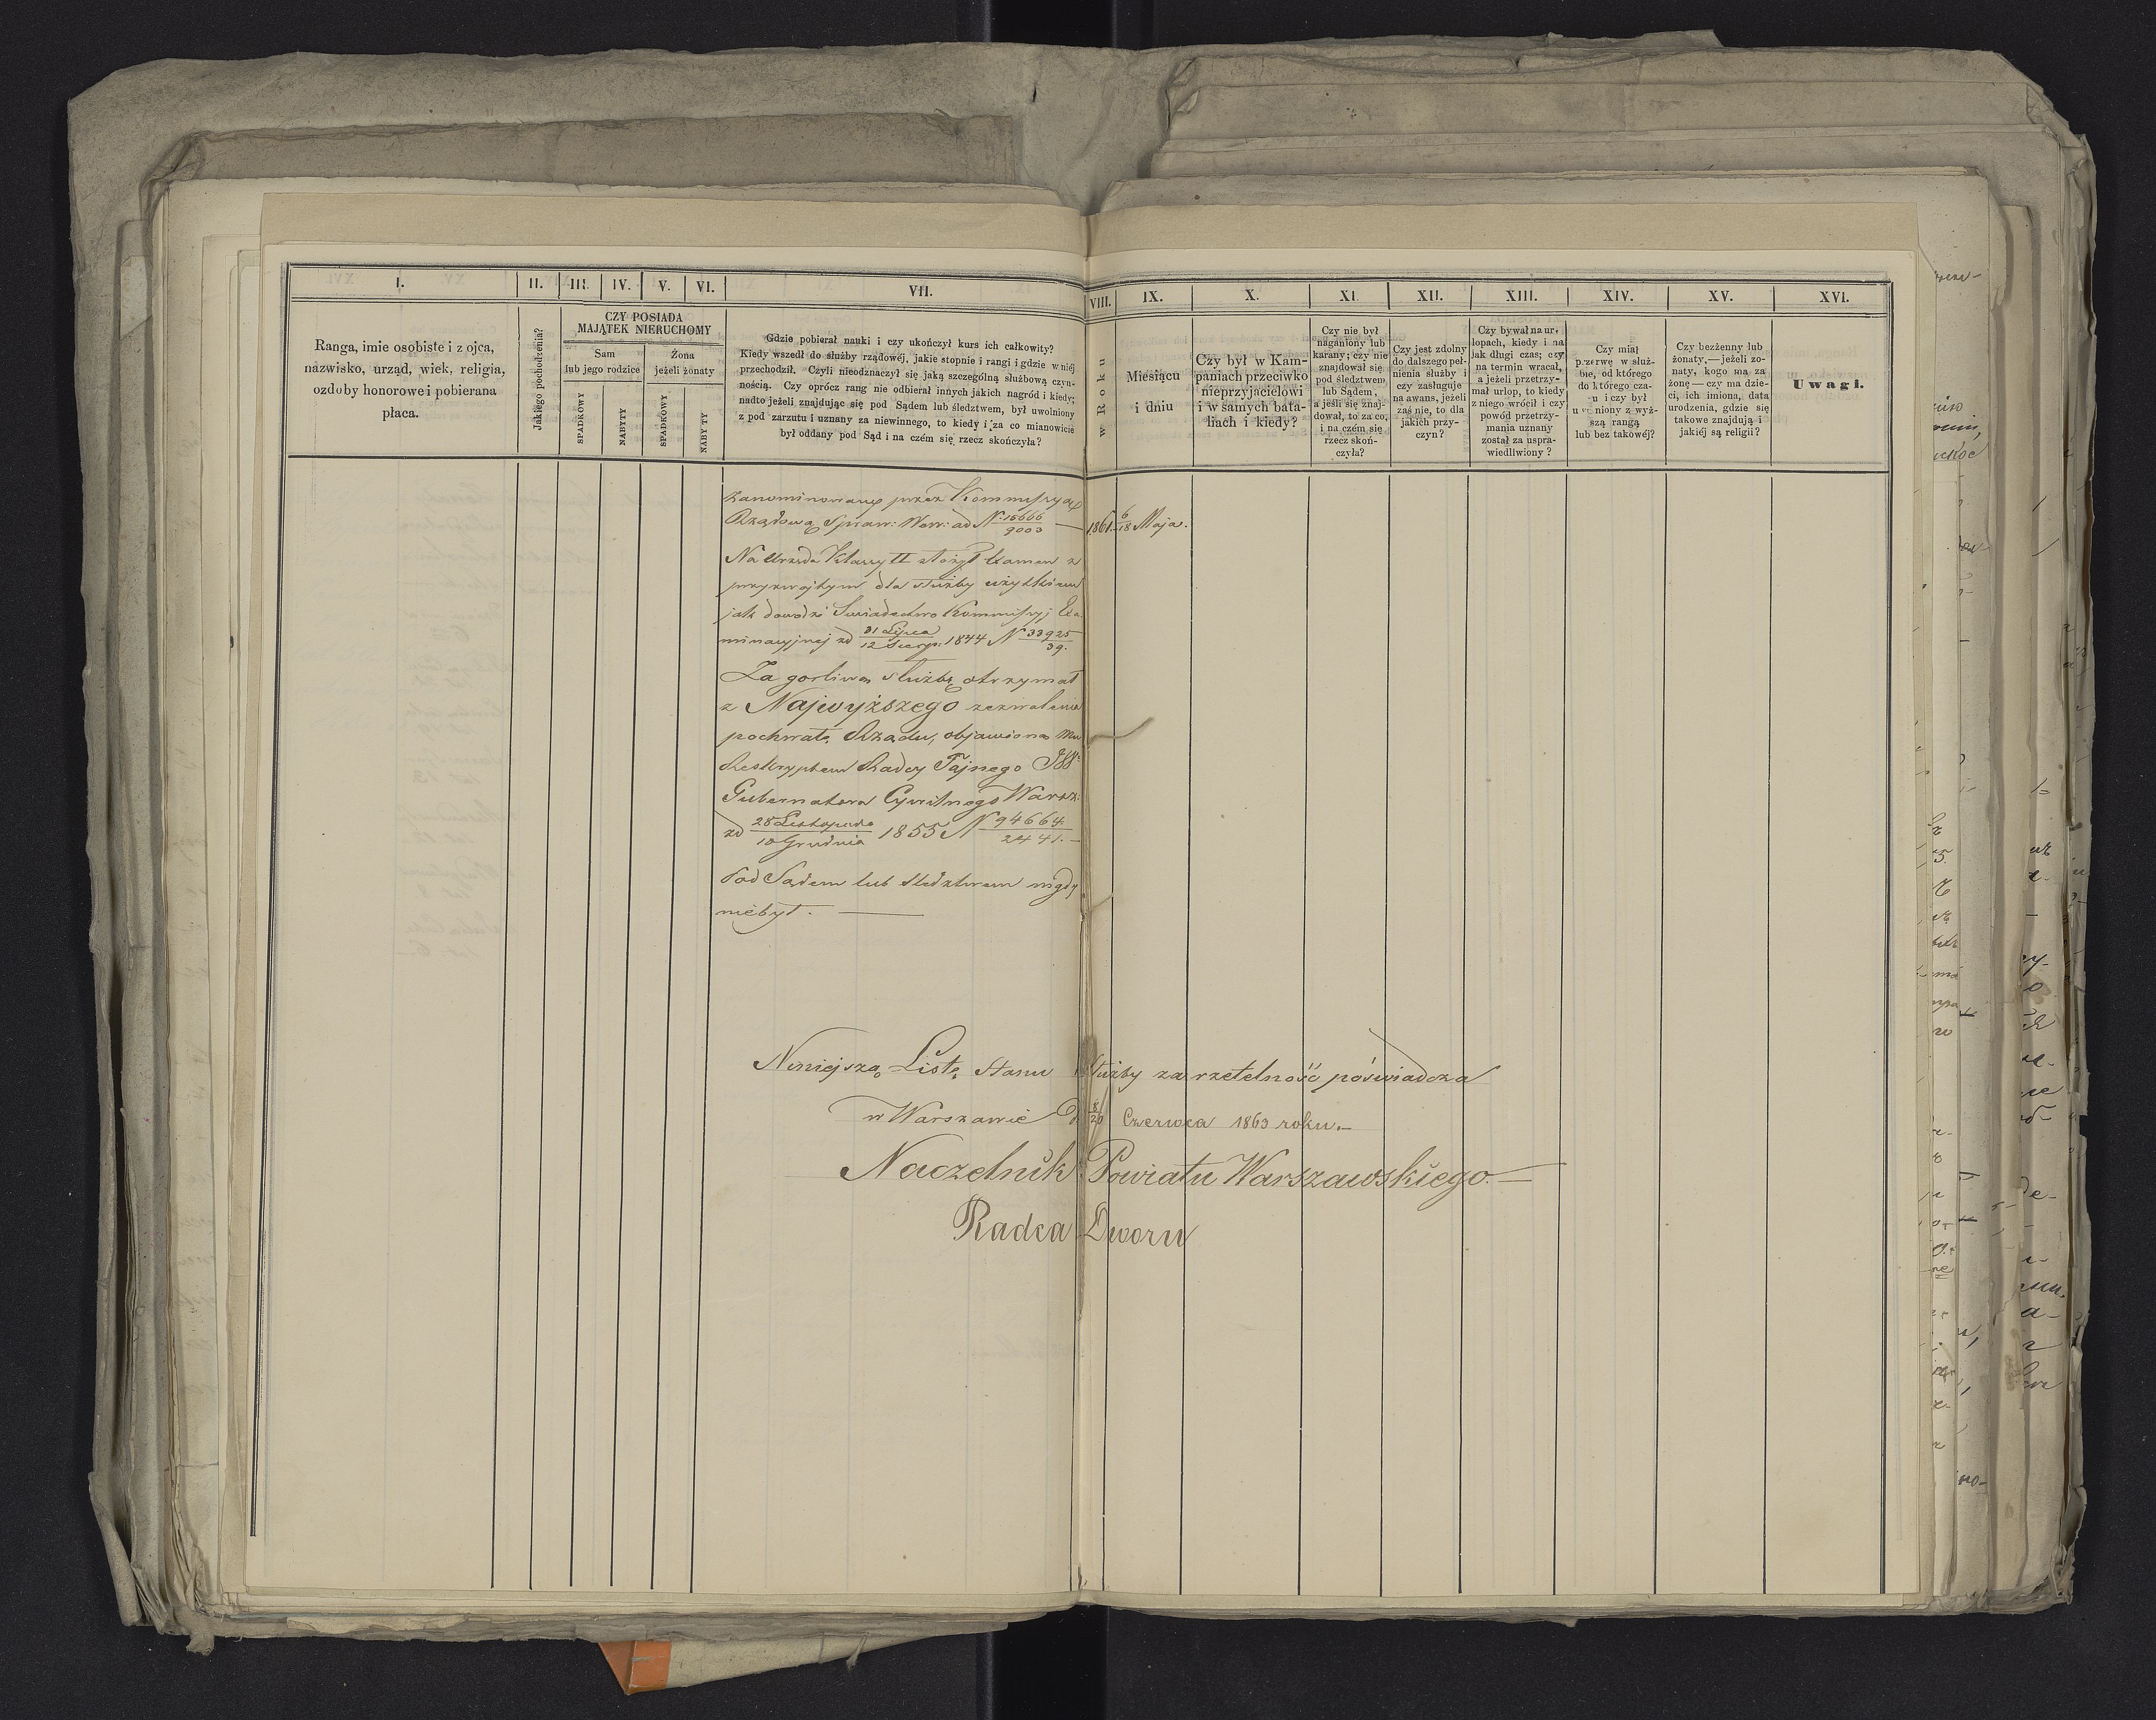 I. II. III. IV. V. VI. VII. VIII. IX. X. XI. XII. XIII. XIV. XV. XVI.
Ranga, imie osobiste i z ojca,
nazwisko, urząd, wiek, religia,
ozdoby honorowe i pobierana
płaca.
Jakiego pochodzenia?
CZY POSIADA
MAJĄTEK NIERUCHOMY
Sam
lub jego rodzice
Żona
jeżeli żonaty
SPADKOWY
NABYTY
SPADKOWY
NABYTY
Gdzie pobierał nauki i czy ukończył kurs ich całkowity?
Kiedy wszedł do służby rządowéj, jakie stopnie i rangi i gdzie w niéj
przechodził. Czyli nieodznaczył się jaką szczególną służbową czyn-
nością. Czy oprócz rang nie odbierał innych jakich nagród i kiedy;
nadto jeżeli znajdując się pod Sądem lub śledztwem, był uwolniony
z pod zarzutu i uznany za niewinnego, to kiedy i za co mianowicie
był oddany pod Sąd i na czém się rzecz skończyła?
w Roku
Miesiącu
i dniu
Czy był w Kam-
paniach przeciwko
nieprzyjacielowi
i w samych bata-
liach i kiedy?
Czy nie był
naganiony lub
karany; czy nie
znajdował się
pod śledztwem
lub Sądem,
a jeśli się znaj-
dował, to za co,
i na czém się
rzecz skoń-
czyła?
Czy jest zdolny
do dalszego peł-
nienia służby i
czy zasługuje
na awans, jeżeli
zaś nie, to dla
jakich przy-
czyn?
Czy bywał na ur-
lopach, kiedy i na
jak długi czas; czy
na termin wracał,
a jeżeli przetrzy-
mał urlop, to kiedy
z niego wrócił i czy
powód przetrzy-
mania uznany
został za uspra-
wiedliwiony?
Czy miał
przerwę w służ-
bie, od którego
do którego cza-
su i czy był
uwolniony z wyż-
szą rangą
lub bez takowéj?
Czy bezżenny lub
żonaty,—jeżeli żo-
naty, kogo ma za
żonę—czy ma dzie-
ci, ich imiona, data
urodzenia, gdzie się
takowe znajdują i
jakiéj są religii?
Uwagi.
zanominowany przez Kommissyą
Rządową Spraw: Wew: ad N. 15666/9003 — 1861. 6/18 Maja.
Na Urzęda Klassy II złożył Examen z
przyzwoitym dla służby użytkiem
jak dowodzi Świadectwo Kommissyi Exa-
minacyjnej zd 31 Lipca/12 Sierp: 1844 N 33925/39.
Za gorliwą służbę otrzymał
z Najwyższego zezwolenia
pochwałę Rządu, objawioną mu
Reskryptem Radcy Tajnego
Gubernatora Cywilnego Warsz:
zd 28 Listopada/10 Grudnia 1855 N 94664/2441.—
Pod Sądem lub śledztwem nigdy
niebył. —
Niniejszą Listę Stanu Służby za rzetelność poświadcza
w Warszawie d. 8/20 Czerwca 1863 roku.—
Naczelnik Powiatu Warszawskiego.—
Radca Dworu